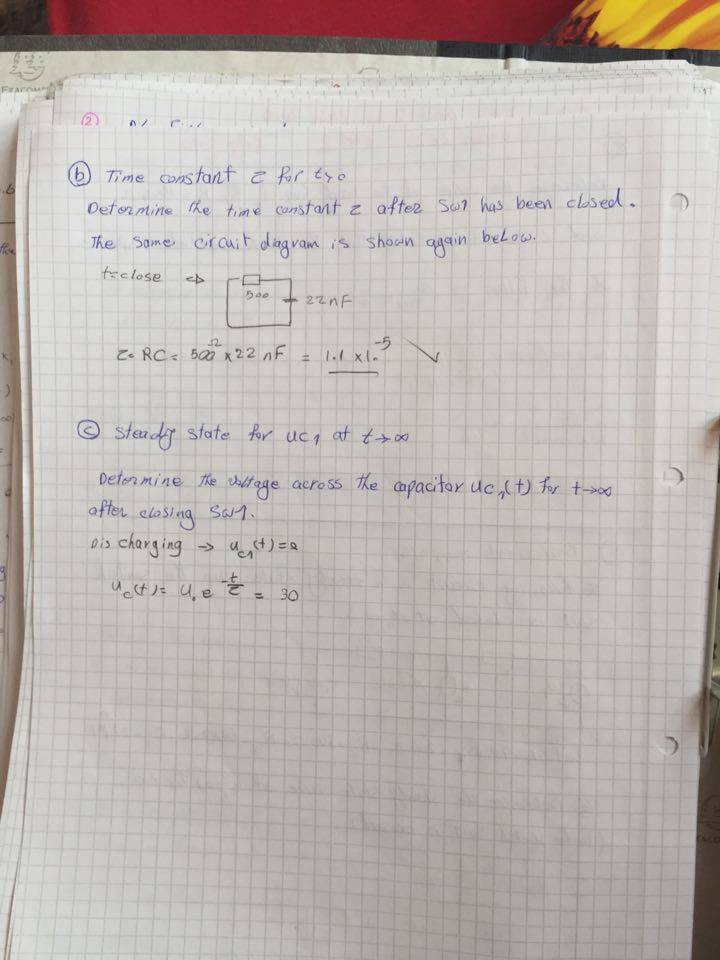 ②
ⓑ Time constant τ for t>0
Determine the time constant τ after SW1 has been closed.
The same circuit diagram is shown again below.
t=close ⇒
500
22nF
τ= RC = 500Ω × 22 nF = 1.1 × 10⁻⁵
ⓒ Steady state for uc₁ at t→∞
Determine the voltage across the capacitor uc₁(t) for t→∞
after closing SW1.
Discharging → uc₁(t)=
uc(t)= U₀ e^-t/τ = 30